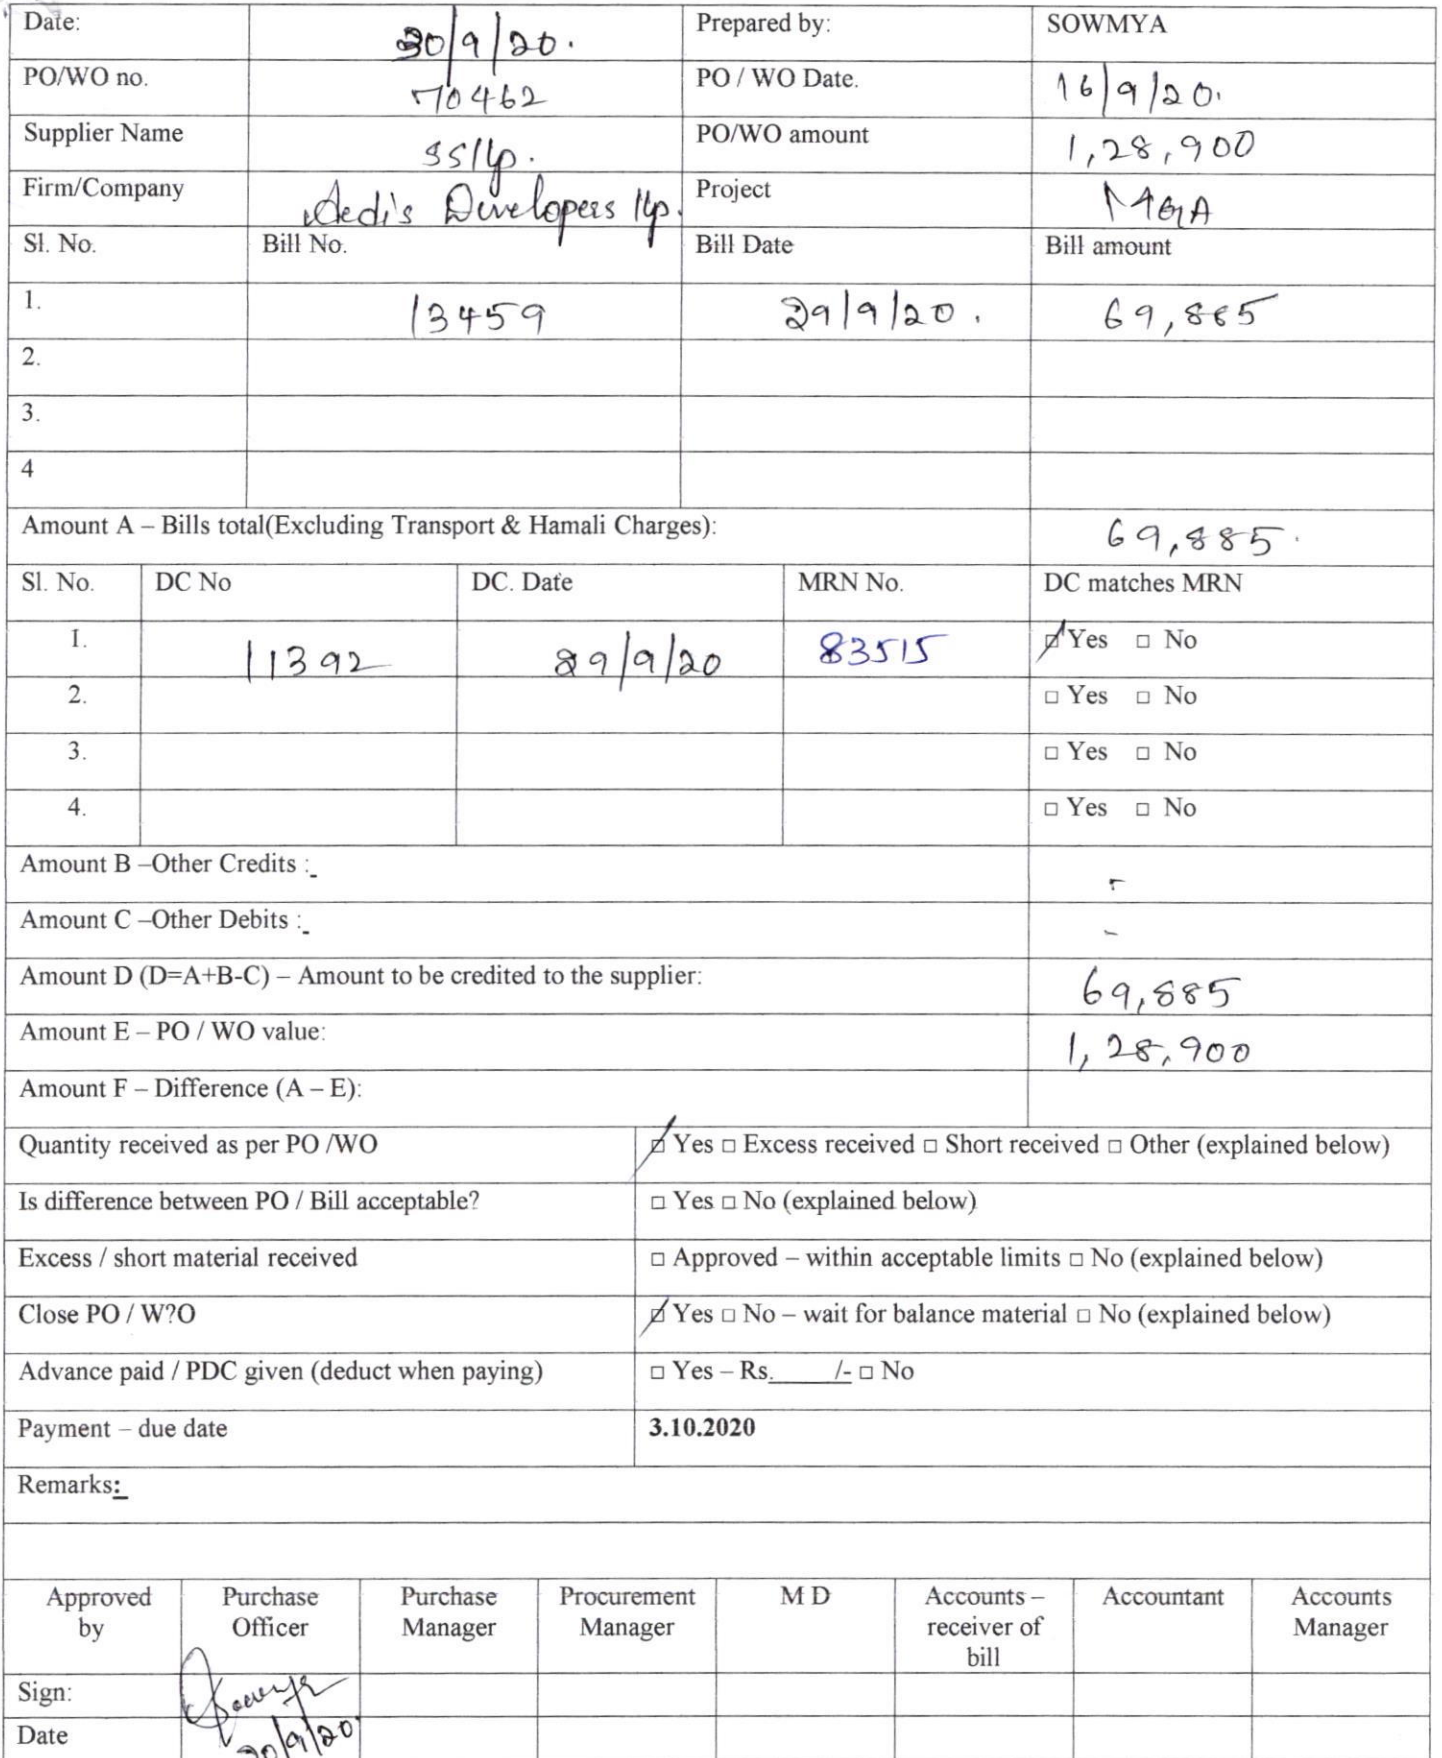 Date: 30/9/20. Prepared by: SOWMYA
PO/WO no. 70462 PO / WO Date. 16/9/20.
Supplier Name SSllp. PO/WO amount 1,28,900
Firm/Company Aedis Developers llp. Project MGA
Sl. No. Bill No. Bill Date Bill amount
1. 13459 29/9/20. 69,885
2.
3.
4
Amount A – Bills total(Excluding Transport & Hamali Charges): 69,885.
Sl. No. DC No DC. Date MRN No. DC matches MRN
1. 11392 29/9/20 83515 ☑ Yes □ No
2. □ Yes □ No
3. □ Yes □ No
4. □ Yes □ No
Amount B –Other Credits : -
Amount C –Other Debits : -
Amount D (D=A+B-C) – Amount to be credited to the supplier: 69,885
Amount E – PO / WO value: 1,28,900
Amount F – Difference (A – E):
Quantity received as per PO /WO ☑ Yes □ Excess received □ Short received □ Other (explained below)
Is difference between PO / Bill acceptable? □ Yes □ No (explained below)
Excess / short material received □ Approved – within acceptable limits □ No (explained below)
Close PO / W?O ☑ Yes □ No – wait for balance material □ No (explained below)
Advance paid / PDC given (deduct when paying) □ Yes – Rs.____/- □ No
Payment – due date 3.10.2020
Remarks:
Approved by Purchase Officer Purchase Manager Procurement Manager M D Accounts – receiver of bill Accountant Accounts Manager
Sign: Sowmya
Date 30/9/20.